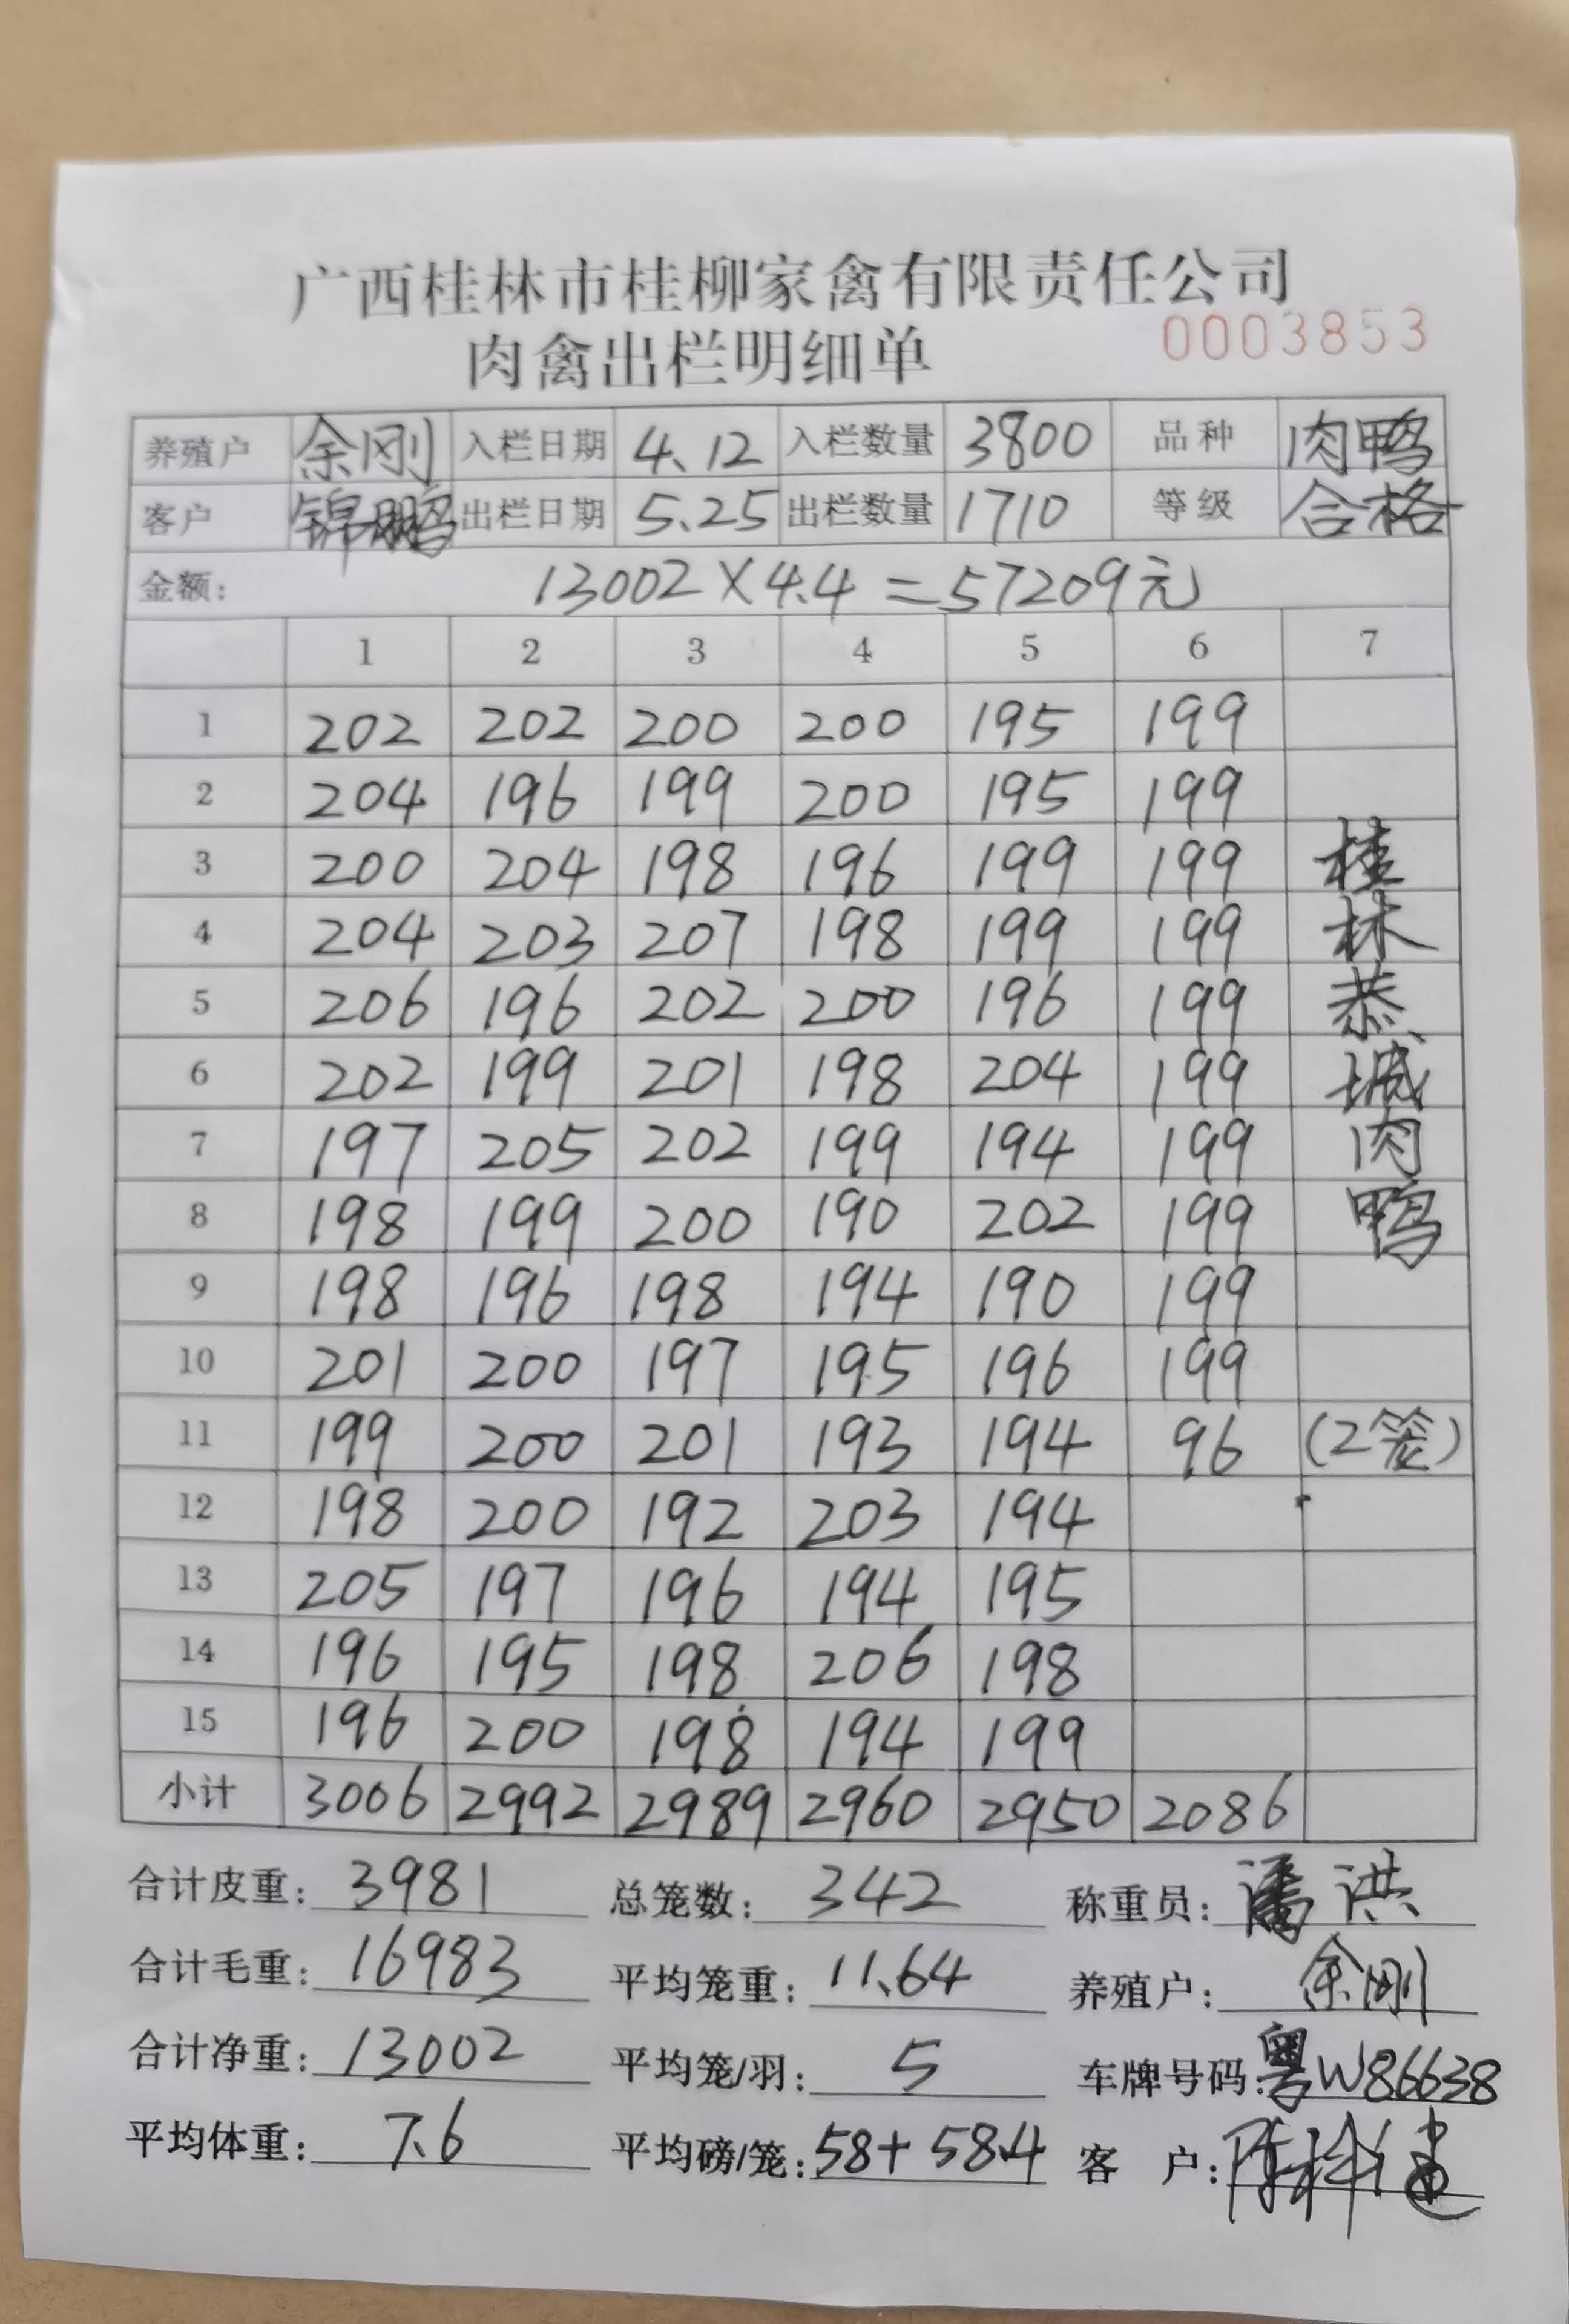 广西桂林市桂柳家禽有限责任公司
肉禽出栏明细单 0003853
养殖户 余刚 入栏日期 4.12 入栏数量 3800 品种 肉鸭
客户 锦鹏 出栏日期 5.25 出栏数量 1710 等级 合格
金额: 13002×4.4=57209元
1 2 3 4 5 6 7
1 202 202 200 200 195 199
2 204 196 199 200 195 199
3 200 204 198 196 199 199 桂
4 204 203 207 198 199 199 林
5 206 196 202 200 196 199 恭
6 202 199 201 198 204 199 城
7 197 205 202 199 194 199 肉
8 198 199 200 190 202 199 鸭
9 198 196 198 194 190 199
10 201 200 197 195 196 199
11 199 200 201 193 194 96 (2笼)
12 198 200 192 203 194
13 205 197 196 194 195
14 196 195 198 206 198
15 196 200 198 194 199
小计 3006 2992 2989 2960 2950 2086
合计皮重: 3981 总笼数: 342 称重员: 潘洪
合计毛重: 16983 平均笼重: 11.64 养殖户: 余刚
合计净重: 13002 平均笼/羽: 5 车牌号码: 粤W86638
平均体重: 7.6 平均磅/笼: 58+58.4 客 户: